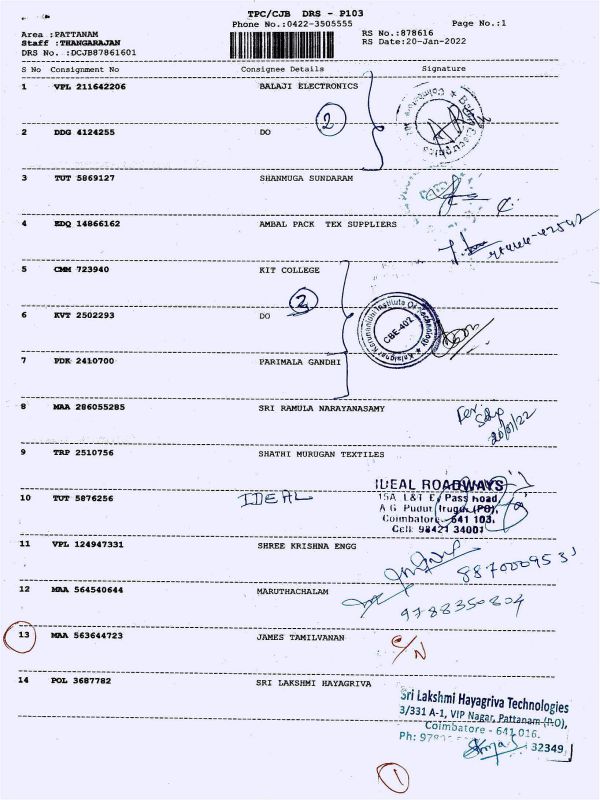 TPC/CJB DRS - P103
Phone No.:0422-3505555
Page No.:1
Area :PATTANAM
RS No.:878616
Staff :THANGARAJAN
RS Date:20-Jan-2022
DRS No. :DCJB87861601
S No Consignment No Consignee Details Signature
1 VPL 211642206 BALAJI ELECTRONICS
2
2 DDG 4124255 DO
3 TUT 5869127 SHANMUGA SUNDARAM
4 EDQ 14866162 AMBAL PACK TEX SUPPLIERS
5 CMM 723940 KIT COLLEGE
2
6 KVT 2502293 DO
Karunanidhi Institute Of Technology
CBE-402
7 PDK 2410700 PARIMALA GANDHI
8 MAA 286055285 SRI RAMULA NARAYANASAMY
20/01/22
9 TRP 2510756 SHATHI MURUGAN TEXTILES
10 TUT 5876256 IDEAL
IDEAL ROADWAYS
15A L&T E Pass road,
A G Pudur Irugur (PO),
Coimbatore - 641 103.
Cell: 98421 34001
11 VPL 124947331 SHREE KRISHNA ENGG
12 MAA 564540644 MARUTHACHALAM
9788350804
13 MAA 563644723 JAMES TAMILVANAN C/N
14 POL 3687782 SRI LAKSHMI HAYAGRIVA
Sri Lakshmi Hayagriva Technologies
3/331 A-1, VIP Nagar, Pattanam (P.O),
Coimbatore - 641 016.
Ph: 32349
1